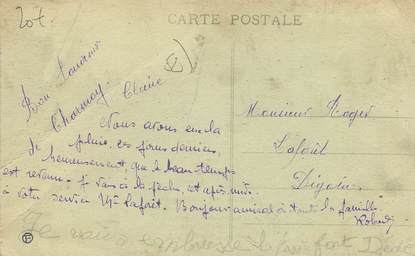 20f.
CARTE POSTALE
Bon Souvenir
de Charnay. Claire
Nous avons eu la
pluie, ces jours derniers,
heureusement, que le beau temps
est revenu. Je vais à la pêche, et après-midi
à votre service Mr Lafait. Bonjour amical à toute la famille.
Robert
Monsieur Roger
Lafait
Digoin
Je vais embrasse la fort Dédé